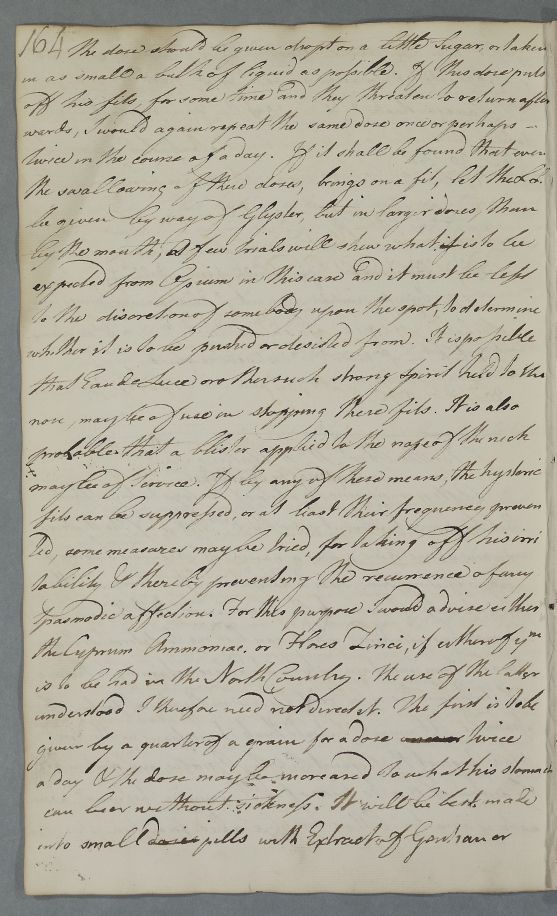 164
The dose should be given dropt on a little Sugar, or taken
in as small a bulk of liquid as possible. If this dose puts
off his fits, for some time and they threaten to return after
wards, I would again repeat the same dose once or perhaps –
twice in the course of a day. If it shall be found that even
the swallowing of these doses, brings on a fit, let the
be given by way of Glyster, but in larger doses, than
by the mouth, A few trials will shew what it is to be
expected from Opium in this case and it must be left
to the discretion of somebody upon the spot, to determine
whether it is to be pursued or desisted from. It is possible
that Eau de Luce or other such strong spirit held to the
nose, may be of use in stopping these fits. It is also
probable that a blister applied to the nape of the neck
may be of service. If by any of these means, the hysteric
fits can be suppressed, or at least their frequency preven
ted, some measures may be tried, for taking off his irri
tability & thereby preventing the recurrence of any
Spasmodic affection. For this purpose I would advise either
the Cuprum Ammoniac. or Flores Zinci, if either of ym
is to be had in the North Country. The use of the latter
understood I therefore need not direct it. The first is to be
given by a quarter of a grain for a dose twice
a day & the dose may be increased to what his stomach
can bear without sickness. It will be best made
into small pills with Extract of Gentian or